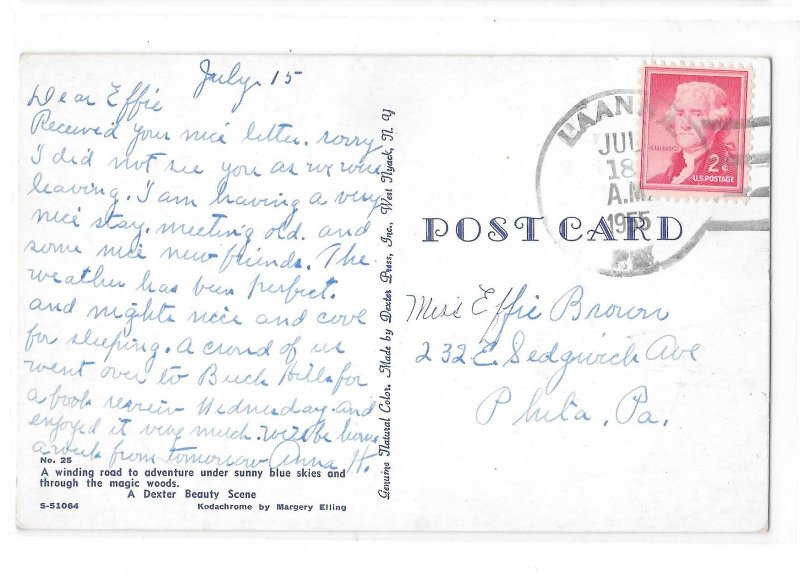 July 15
Dear Effie
Received your nice letter. sorry
I did not see you as we were
leaving. I am having a very
nice stay. meeting old. and
some nice new friends. The
weather has been perfect.
and nights nice and cool
for sleeping. A crowd of us
went over to Buck Hills for
a book review Wednesday. and
enjoyed it very much. will be home
a week from tomorrow Anna H.
No. 25
A winding road to adventure under sunny blue skies and
through the magic woods.
A Dexter Beauty Scene
S-51064 Kodachrome by Margery Elling
Genuine Natural Color. Made by Dexter Press, Inc., West Nyack, N. Y
JUL
18
A.M.
1955
2¢
U.S. POSTAGE
POST CARD
Miss Effie Brown
232 E. Sedgwick Ave
Phila, Pa.